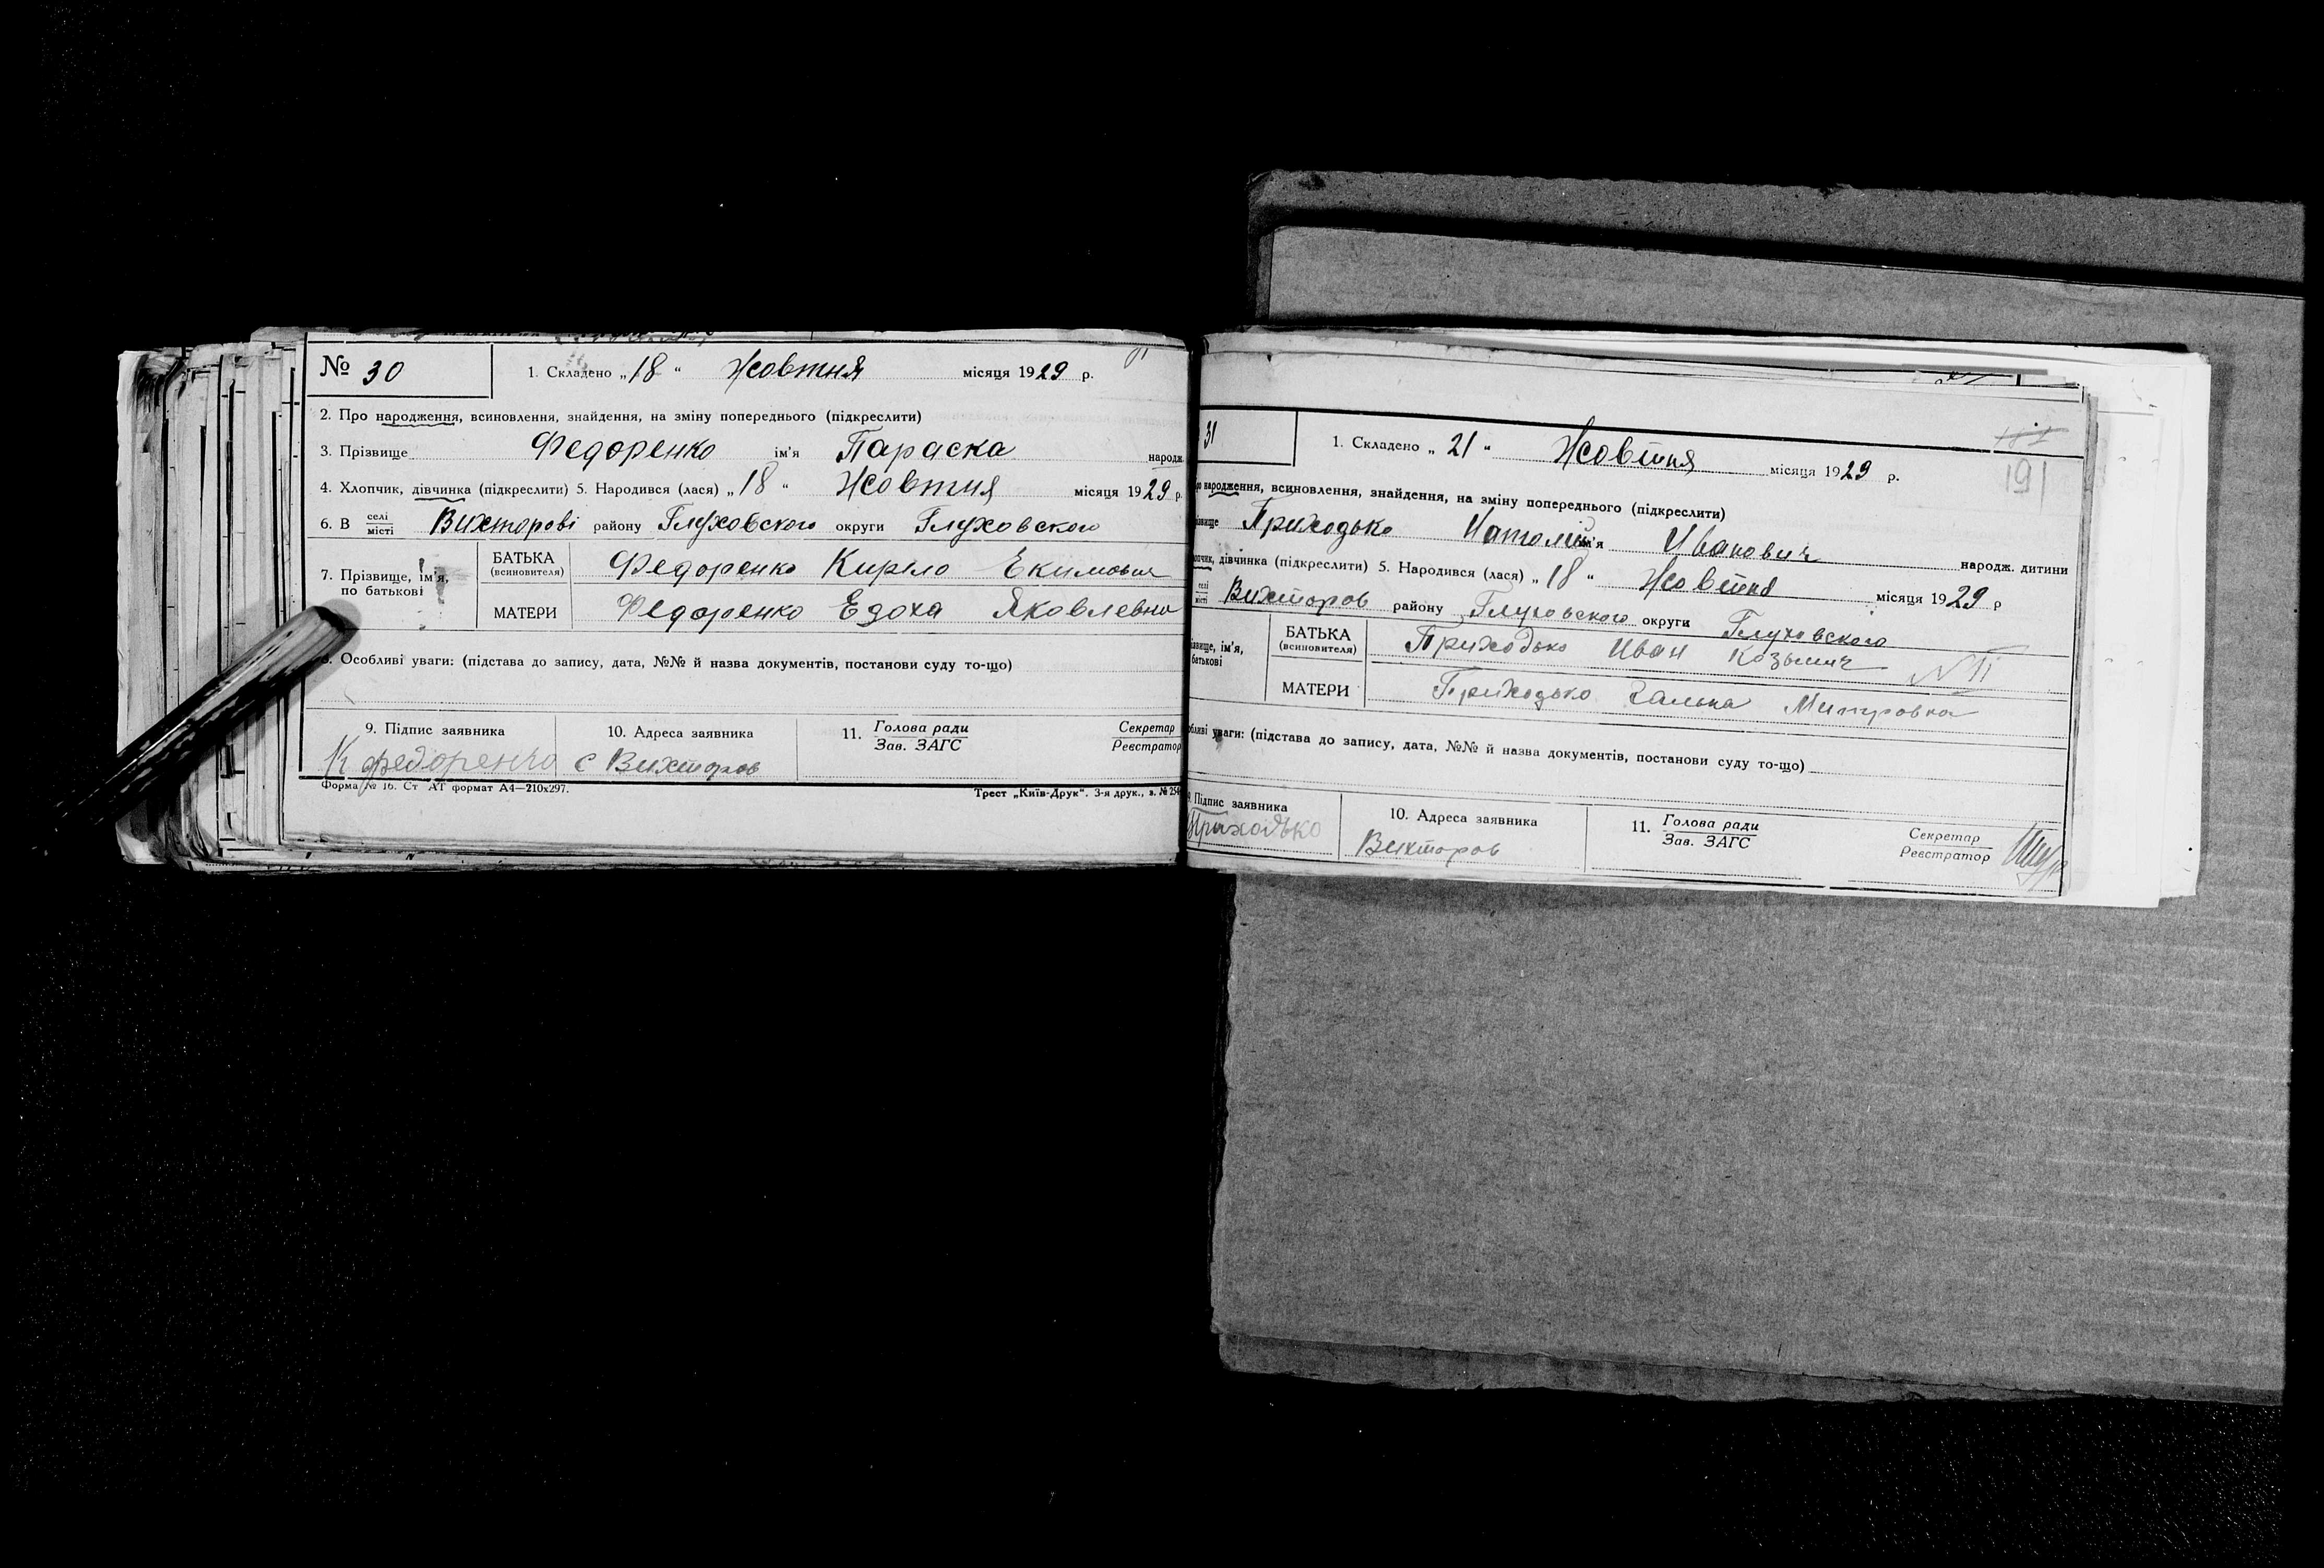 № 30
1. Складено „18" Жовтня місяця 1929 р.
2. Про народження, всиновлення, знайдення, на зміну попереднього (підкреслити)
3. Прізвище Федоренко ім'я Параска народж.
4. Хлопчик, дівчинка (підкреслити) 5. Народився (лася) „18" Жовтня місяця 1929 р.
6. В селі місті Вихторові району Глуховского округи Глуховского
7. Прізвище, ім'я, по батькові
БАТЬКА (всиновителя) Федоренко Кирило Екимович
МАТЕРИ Федоренко Едоха Яковлевна
8. Особливі уваги: (підстава до запису, дата, №№ й назва документів, постанови суду то-що)
9. Підпис заявника
К Федоренко
10. Адреса заявника
с Вихторов
11. Голова ради Зав. ЗАГС
Секретар Реєстратор
Форма № 16. Ст АТ формат А4—210х297.
Трест „Київ-Друк". 3-я друк., з. № 254
31
1. Складено „21" Жовтня місяця 1929 р.
191
народження, всиновлення, знайдення, на зміну попереднього (підкреслити)
Приходько Натолій ім'я Иванович народж. дитини
дівчинка (підкреслити) 5. Народився (лася) „18" Жовтня місяця 1929 р
селі місті Вихторов району Глуховского округи Глуховского
ім'я, батькові
БАТЬКА (всиновителя) Приходько Иван Козьмич
МАТЕРИ Приходько Галька Митровна
уваги: (підстава до запису, дата, №№ й назва документів, постанови суду то-що)
9. Підпис заявника
Приходько
10. Адреса заявника
Вихторов
11. Голова ради Зав. ЗАГС
Секретар Реєстратор